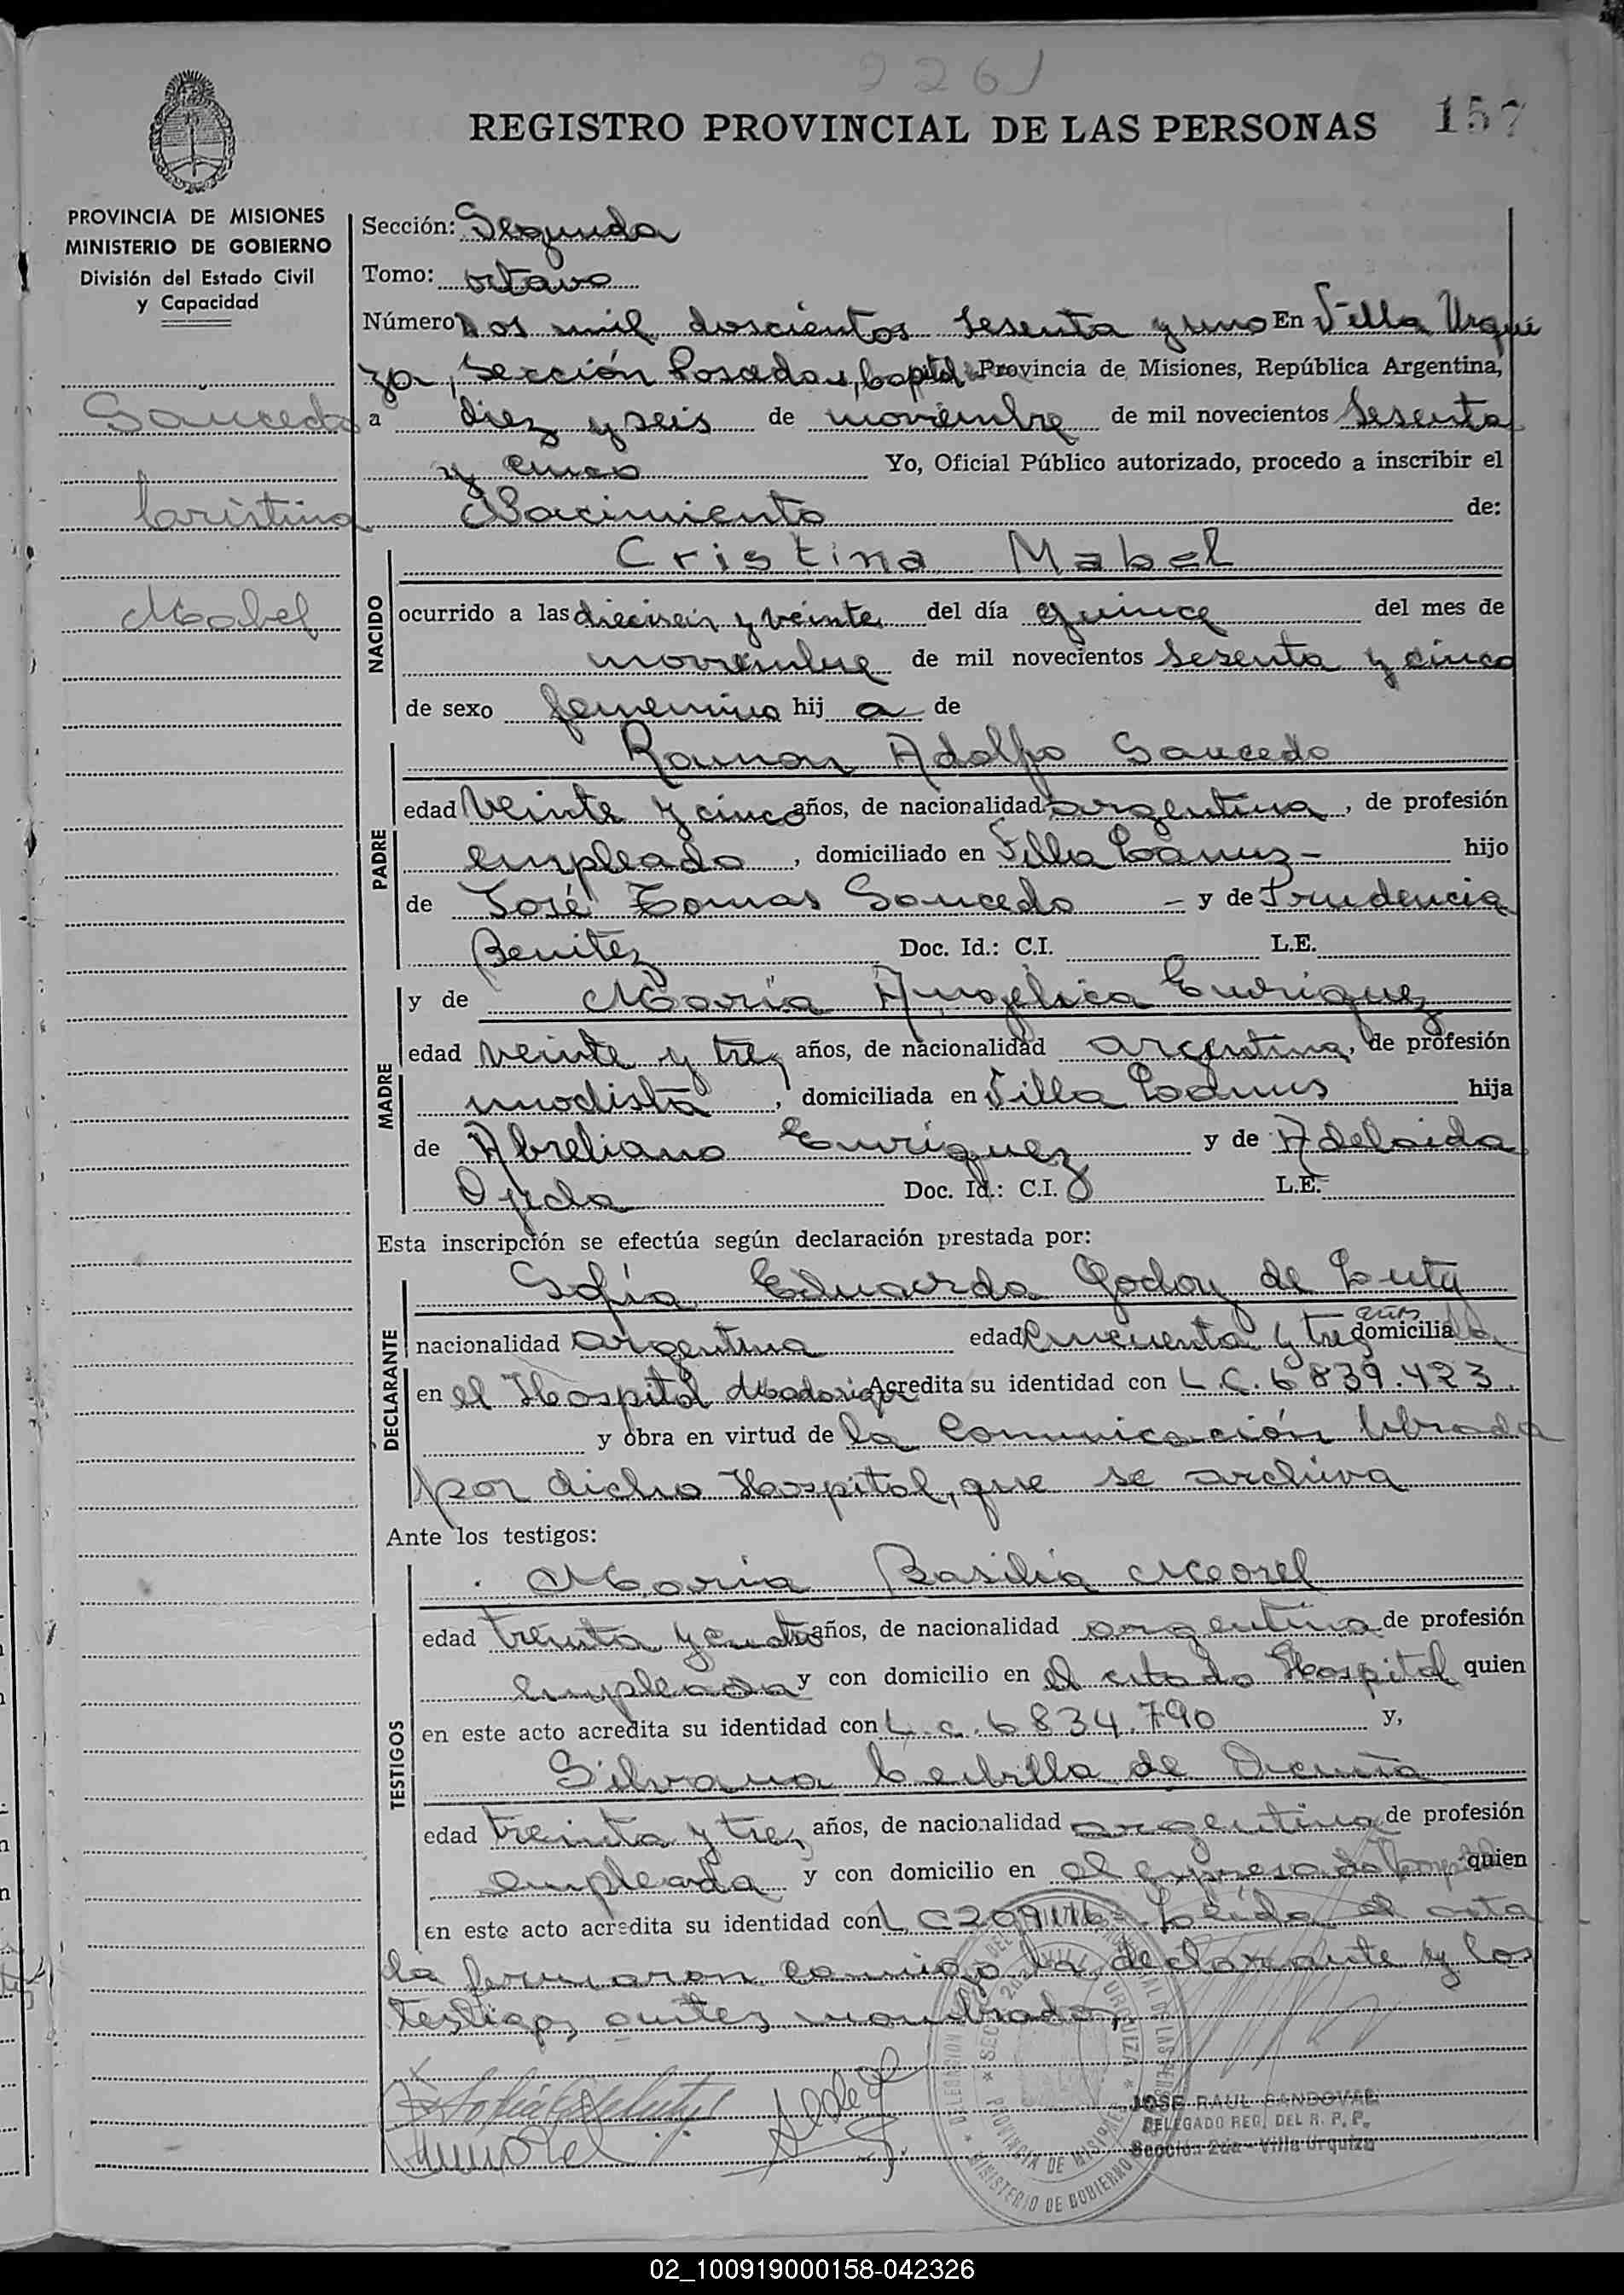 2261
REGISTRO PROVINCIAL DE LAS PERSONAS 157
PROVINCIA DE MISIONES
MINISTERIO DE GOBIERNO
División del Estado Civil
y Capacidad
Saucedo
Cristina
Mabel
Sección: Segunda
Tomo: octavo
Número Dos mil doscientos sesenta y uno En Villa Urqui
za, Sección Posadas, Capital Provincia de Misiones, República Argentina,
a diez y seis de noviembre de mil novecientos sesenta
y cinco Yo, Oficial Público autorizado, procedo a inscribir el
Nacimiento de:
NACIDO
Cristina Mabel
ocurrido a las dieciseis y veinte del día quince del mes de
noviembre de mil novecientos sesenta y cinco
de sexo femenino hij a de
PADRE
Ramon Adolfo Saucedo
edad veinte y cinco años, de nacionalidad argentina, de profesión
empleado, domiciliado en Villa Lanus - hijo
de José Tomas Saucedo - y de Prudencia
Benitez Doc. Id.: C.I. L.E.
MADRE
y de María Angelica Enriquez
edad veinte y tres años, de nacionalidad argentina, de profesión
modista, domiciliada en Villa Lanus hija
de Abreliano Enriquez y de Adelaida
Ojeda Doc. Id.: C.I. L.E.
Esta inscripción se efectúa según declaración prestada por:
DECLARANTE
Sofía Eduarda Godoy de Luty
nacionalidad argentina edad cincuenta y tres años domicilia da
en el Hospital Madariaga Acredita su identidad con L.C. 6839.423
y obra en virtud de la Comunicación librada
por dicho Hospital, que se archiva
Ante los testigos:
TESTIGOS
María Basilia
edad treinta y cuatro años, de nacionalidad argentina de profesión
empleada y con domicilio en el citado Hospital quien
en este acto acredita su identidad con L.C. 6834.790 y,
Silvana de
edad treinta y tres años, de nacionalidad argentina de profesión
empleada y con domicilio en el expresado Hospital quien
en este acto acredita su identidad con L.C Leída el acta
la firmaron conmigo la declarante y los
testigos antes nombrados,
JOSE RAUL SANDOVAL
DELEGADO REG. DEL R. P. P.
Sección 2da - Villa Urquiza
PROVINCIA DE MISIONES
MINISTERIO DE GOBIERNO
02_100919000158-042326